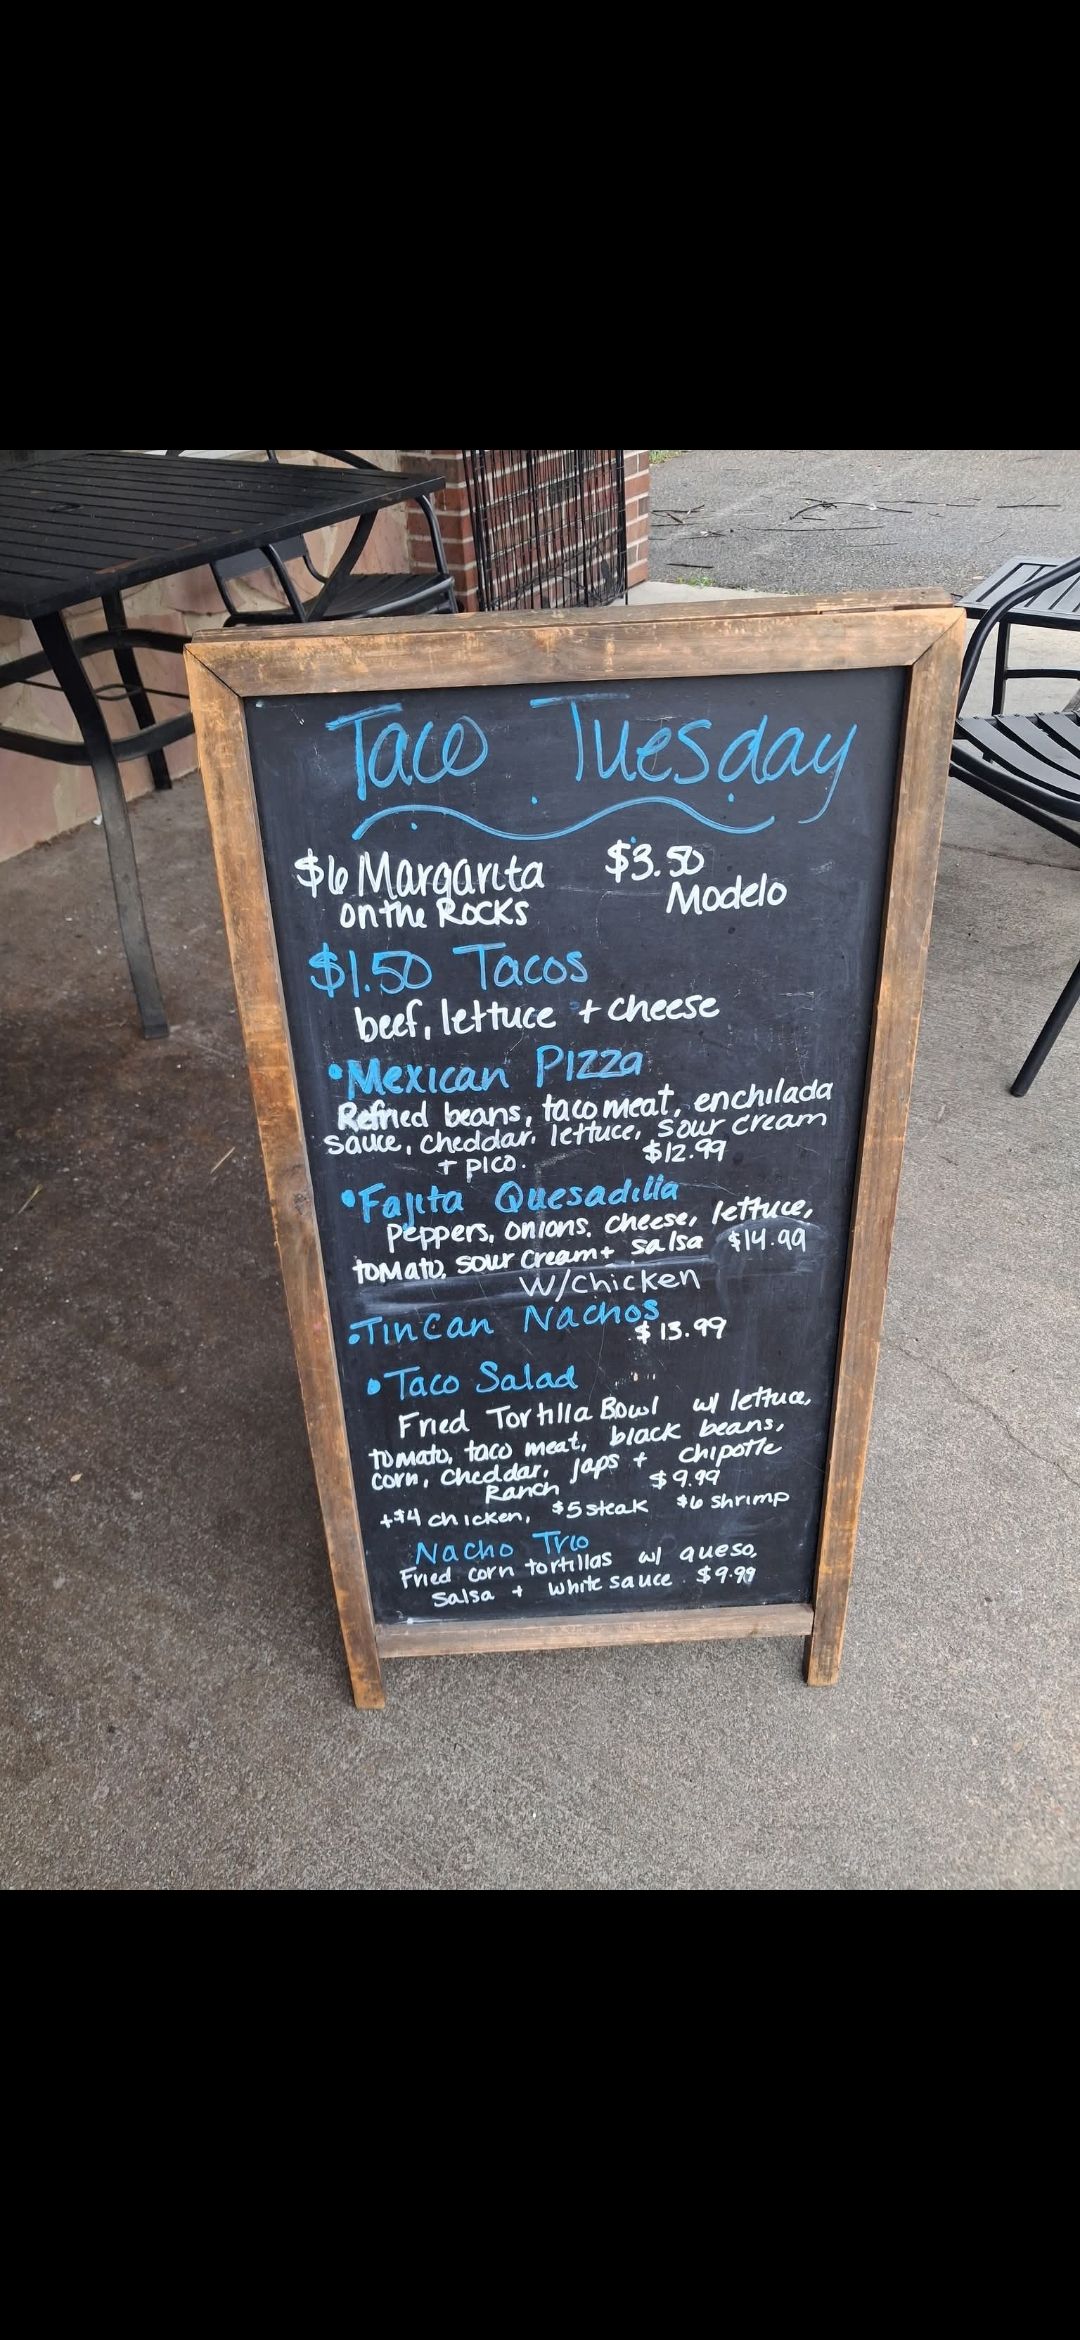 Taco Tuesday
$6 Margarita $3.50
on the Rocks Modelo
$1.50 Tacos
beef, lettuce + cheese
•Mexican Pizza
Refried beans, taco meat, enchilada
sauce, cheddar, lettuce, sour cream
+ pico. $12.99
•Fajita Quesadilla
Peppers, onions, cheese, lettuce,
tomato, sour cream + salsa $14.99
W/Chicken
•Tin Can Nachos
$13.99
•Taco Salad
Fried Tortilla Bowl w/ lettuce,
tomato, taco meat, black beans,
corn, cheddar, japs + chipotle
Ranch $9.99
+$4 chicken, $5 steak $6 shrimp
Nacho Trio
Fried corn tortillas w/ queso,
salsa + white sauce $9.99